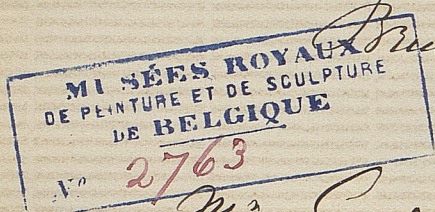 MUSÉES ROYAUX
DE PEINTURE ET DE SCULPTURE
DE BELGIQUE
Nº 2763